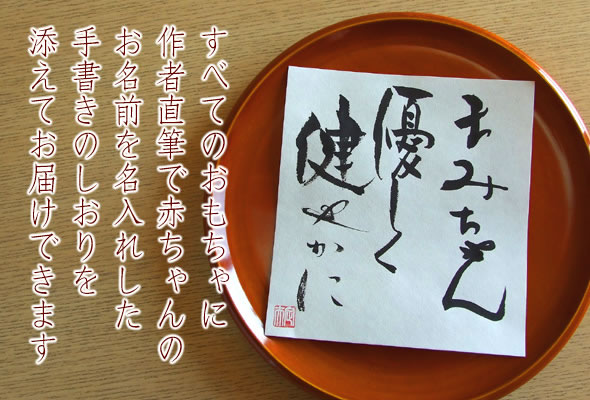 すべてのおもちゃに
作者直筆で赤ちゃんの
お名前を名入れした
手書きのしおりを
添えてお届けできます
まみちゃん
優しく
健やかに